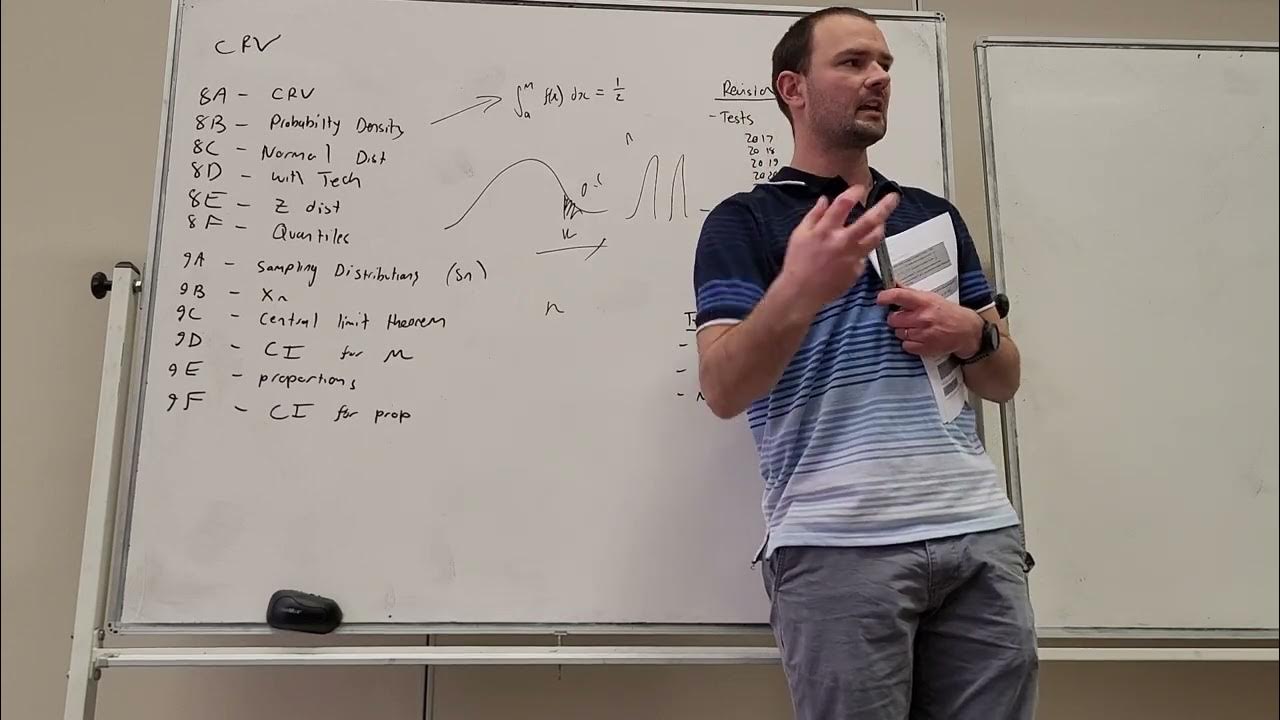 CRV
8A - CRV
8B - Probabilty Density
8C - Normal Dist
8D - with Tech
8E - Z dist
8F - Quantiles
9A - Sampling Distributions (Sn)
9B - Xn
9C - Central limit theorem
9D - CI for M
9E - proportions
9F - CI for prop
∫ₐᴹ f(x) dx = 1/2
n
k
n
Revision
- Tests
2017
2018
2019